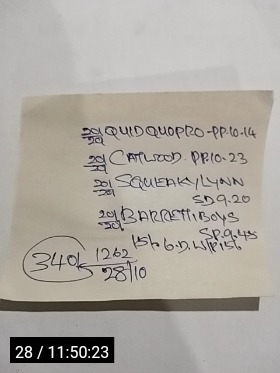 20/20 QUIDQUOPRO-PP.10-14
20/20 CATWOOD. PP.10-23
20/20 SQUEAKYLYNN
SD9.20
20/20 BARRETTIBOYS
SP.9.45
15h G.D.
340k 1262
28/10
28 / 11:50:23